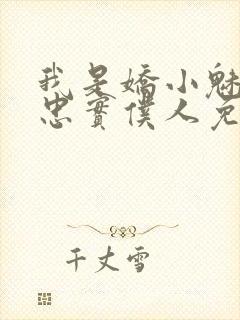 我是嬌小魅
忠實僕人免
千丈雪